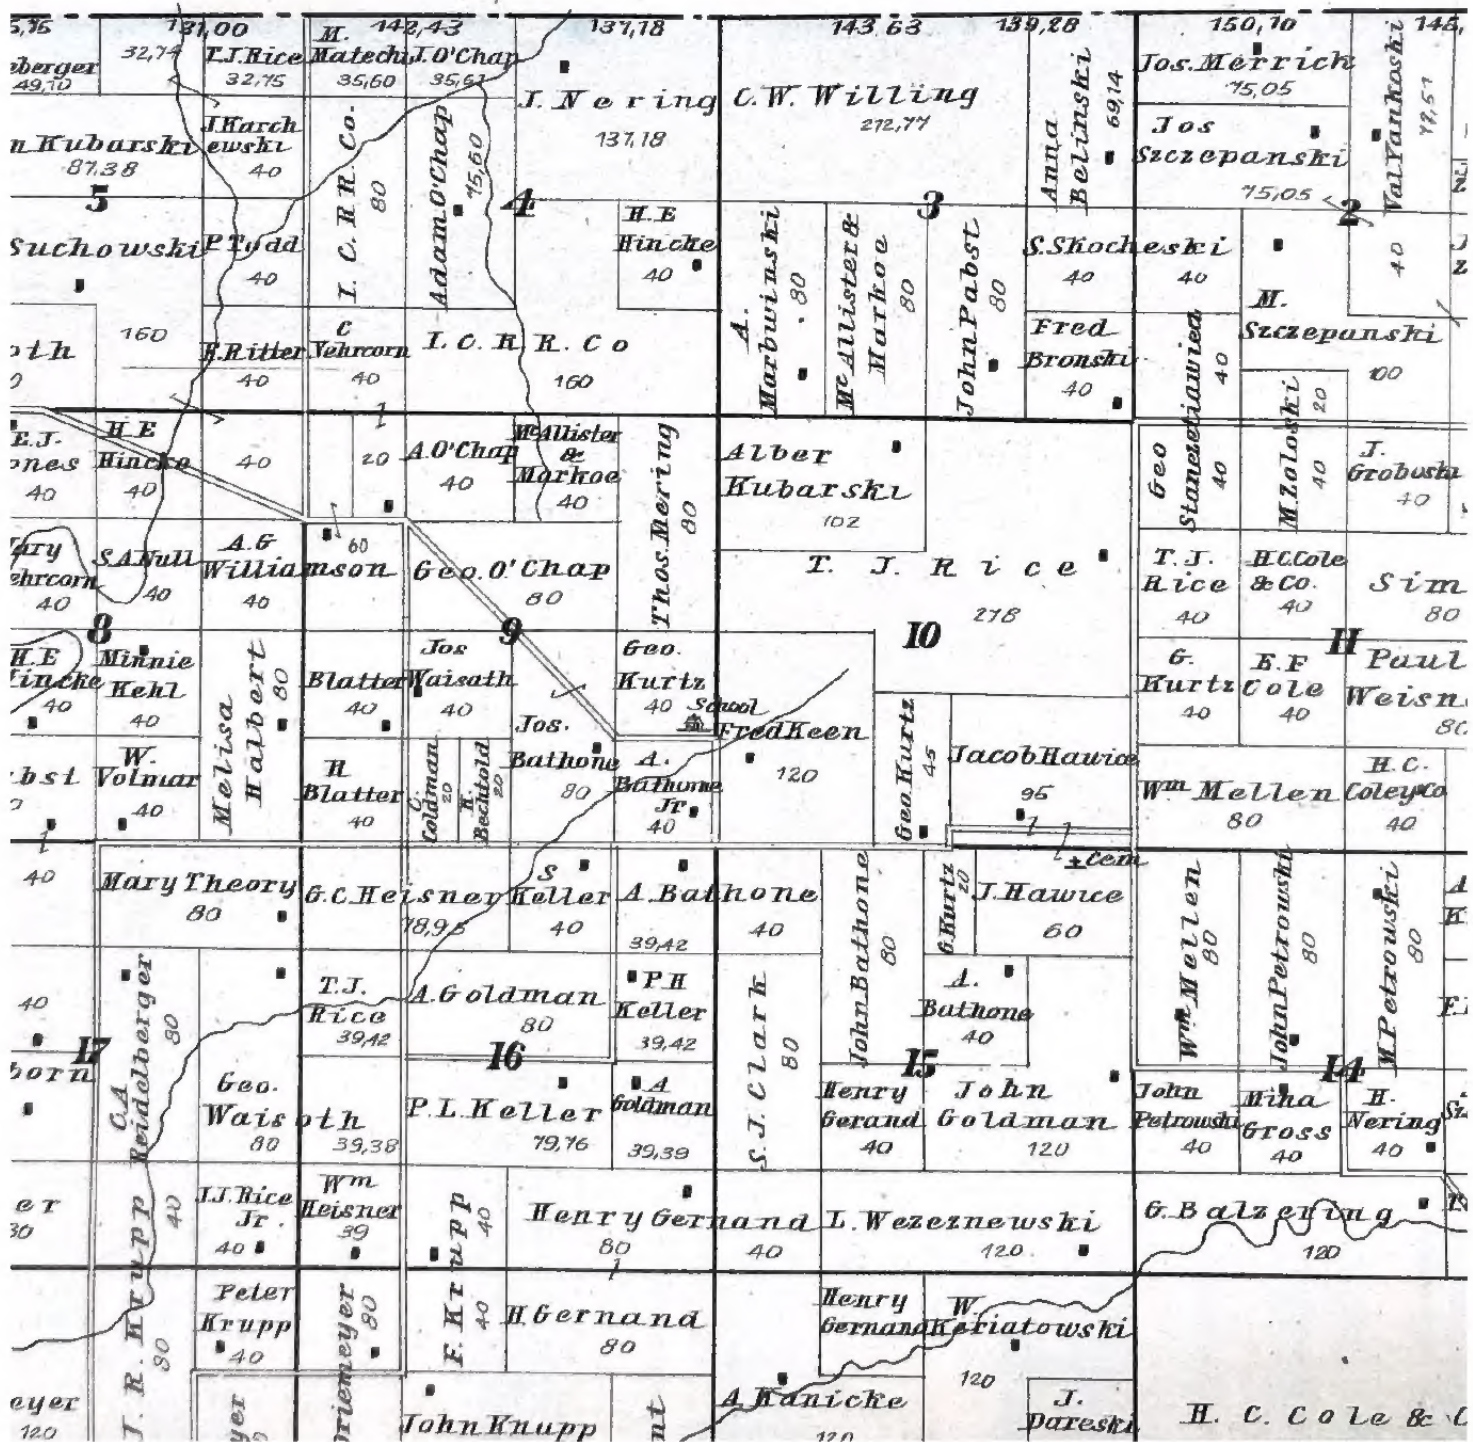 131,00
142,43
137,18
143,63
139,28
150,10
eberger
49,10
32,74
T.J. Rice
32,75
M.
Matechi
35,60
J. O'Chap
35,61
J. Nering
137,18
C.W. Willing
272,77
Anna
Belinski
69,14
Jos. Merrick
75,05
Val Yankoski
72,57
40
n Kubarski
87,38
5
J. Karch
ewski
40
I. C. R R. Co.
80
Adam. O'Chap
75,60
4
3
Jos
Szczepanski
75,05
2
Suchowski
P. Tydd
40
H.E
Hincke
40
A.
Marbwinski
80
McAllister &
Markoe
80
John Pabst
80
S. Skocheski
40
40
M.
Szczepanski
100
160
F. Ritter
40
C
Vehrcorn
40
I. C. R R. Co
160
Fred
Bronski
40
Geo
Stanetiawied
40
40
M Zoloski
20
40
E. J.
ones
40
H E
Hincke
40
40
20
A. O'Chap
40
McAllister
&
Markoe
40
Thos. Mering
80
Alber
Kubarski
102
J.
Grobuski
40
ehrcorn
40
S.A Null
40
A. G
Williamson
40
60
Geo. O'Chap
80
T. J. Rice
278
T. J.
Rice
40
H.C. Cole
& Co.
40
Sim
80
8
9
10
11
H.E
Hincke
40
Minnie
Kehl
40
Melisa
Halbert
80
Blatter
40
Jos
Waisath
40
Jos.
Bathone
80
Geo.
Kurtz
40
School
Fred Keen
120
Geo. Kurtz
45
Jacob Hawice
95
G.
Kurtz
40
E. F
Cole
40
Paul
Weisn
bst
W.
Volmar
40
R
Blatter
40
C.
Coldman
20
K.
Bechtold
20
A.
Bathome
Jr.
40
Wm Mellen
80
H. C.
Coley & Co
40
40
Mary Theory
80
G.C. Heisner
78,95
S
Keller
40
A. Bathone
39,42
40
John Bathone
80
G. Kurtz
20
J. Hawice
60
Cem
Wm Mellen
80
John Petrowski
80
M. Petrowski
80
40
17
C.A
Reidelberger
80
T. J.
Rice
39,42
A. Goldman
80
16
P H
Keller
39,42
S. J. Clark
80
15
A.
Bathone
40
14
born
Geo.
Waisoth
80
39,38
P. L. Keller
79,76
A
Goldman
39,39
Henry
Gerand
40
John
Goldman
120
John
Petrowski
40
Mina
Gross
40
H.
Nering
40
er
J. R. Krupp
40
80
J.J. Rice
Jr.
40
Wm
Heisner
39
F. Krupp
40
40
Henry Gernand
80
40
L. Wezeznewski
120
G. Balzering
120
Peter
Krupp
40
riemeyer
80
H. Gernand
80
Henry
Gernand
W.
Keriatowski
120
eyer
120
yer
John Knupp
nt
A. Kanicke
120
J.
Dareski
H. C. Cole & C